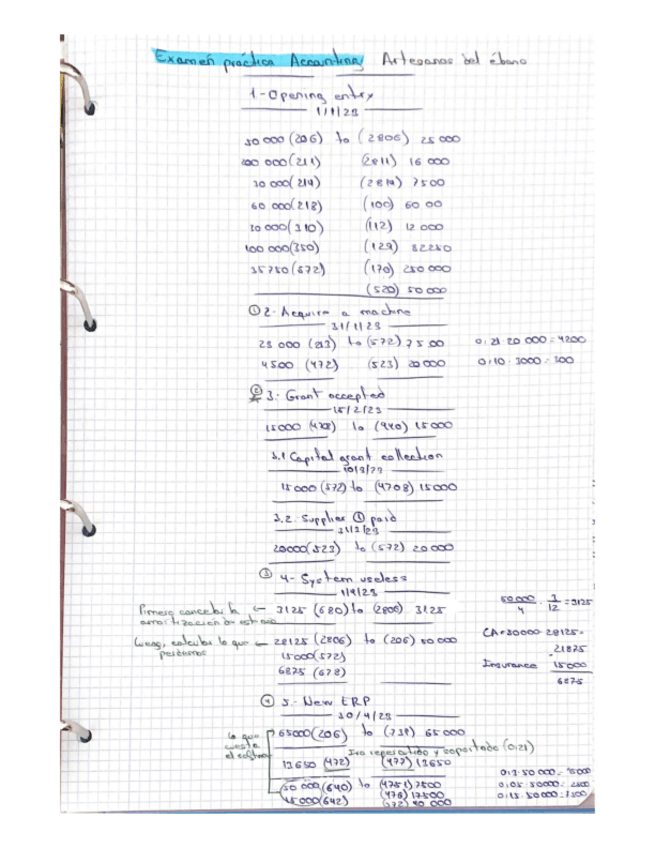 Examen práctica Accounting Artesanos del ébano
1-Opening entry
1/1/23
50 000 (206) to (2806) 25 000
200 000 (211) (2811) 16 000
30 000 (214) (2814) 7500
60 000 (218) (100) 60 00
20 000 (310) (112) 12 000
100 000 (350) (129) 82250
35750 (572) (170) 250 000
(520) 50 000
① 2- Acquire a machine
31/1/23
23 000 (213) to (572) 75 00 0,21 · 20 000 = 4200
4500 (472) (523) 20 000 0,10 · 3000 = 300
② 3.- Grant accepted
15/2/23
15000 (4708) to (940) 15000
3.1 Capital grant collection
10/3/23
15 000 (572) to (4708) 15000
3.2. Supplier ① paid
31/3/23
20000 (523) to (572) 20 000
③ 4- System useless
1/4/23
Primero cancelas la ← 3125 (680) to (2806) 3125
amortización de est año
50 000 / 4 · 3 / 12 = 3125
Luego, calculas lo que ← 28125 (2806) to (206) 50 000
perdemos
15000 (572)
6875 (678)
CA = 50000 - 28125 =
21875
Insurance 15000
6875
④ 5.- New ERP
30/4/23
lo que cuesta el software
65000 (206) to (731) 65 000
Iva repercutido y soportado (0,21)
13650 (472) (477) 13650
50 000 (640) to (4751) 7500
15 000 (642) (476) 17500
(572) 40 000
0,1 · 50 000 = 5000
0,05 · 50000 = 2500
0,15 · 50000 = 7500